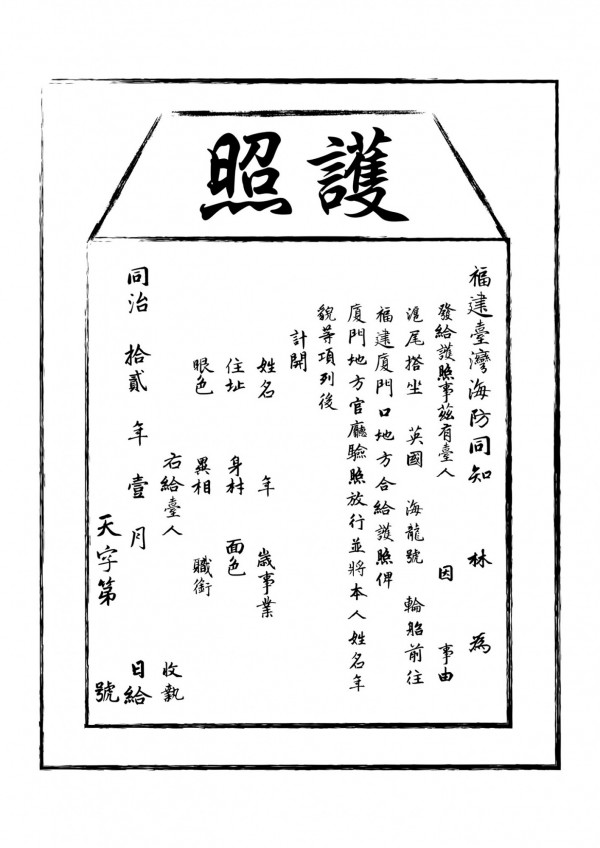 護照
福建臺灣海防同知 林 為
發給護照事茲有臺人 因 事由
滬尾搭坐 英國 海龍號 輪船前往
福建廈門口地方合給護照俾
廈門地方官廳驗照放行並將本人姓名年
貌等項列後
計開
姓名 年 歲事業
住址 身材 面色
眼色 異相 職銜
右給臺人 收執
同治 拾貳 年 壹 月 日給
天字第 號